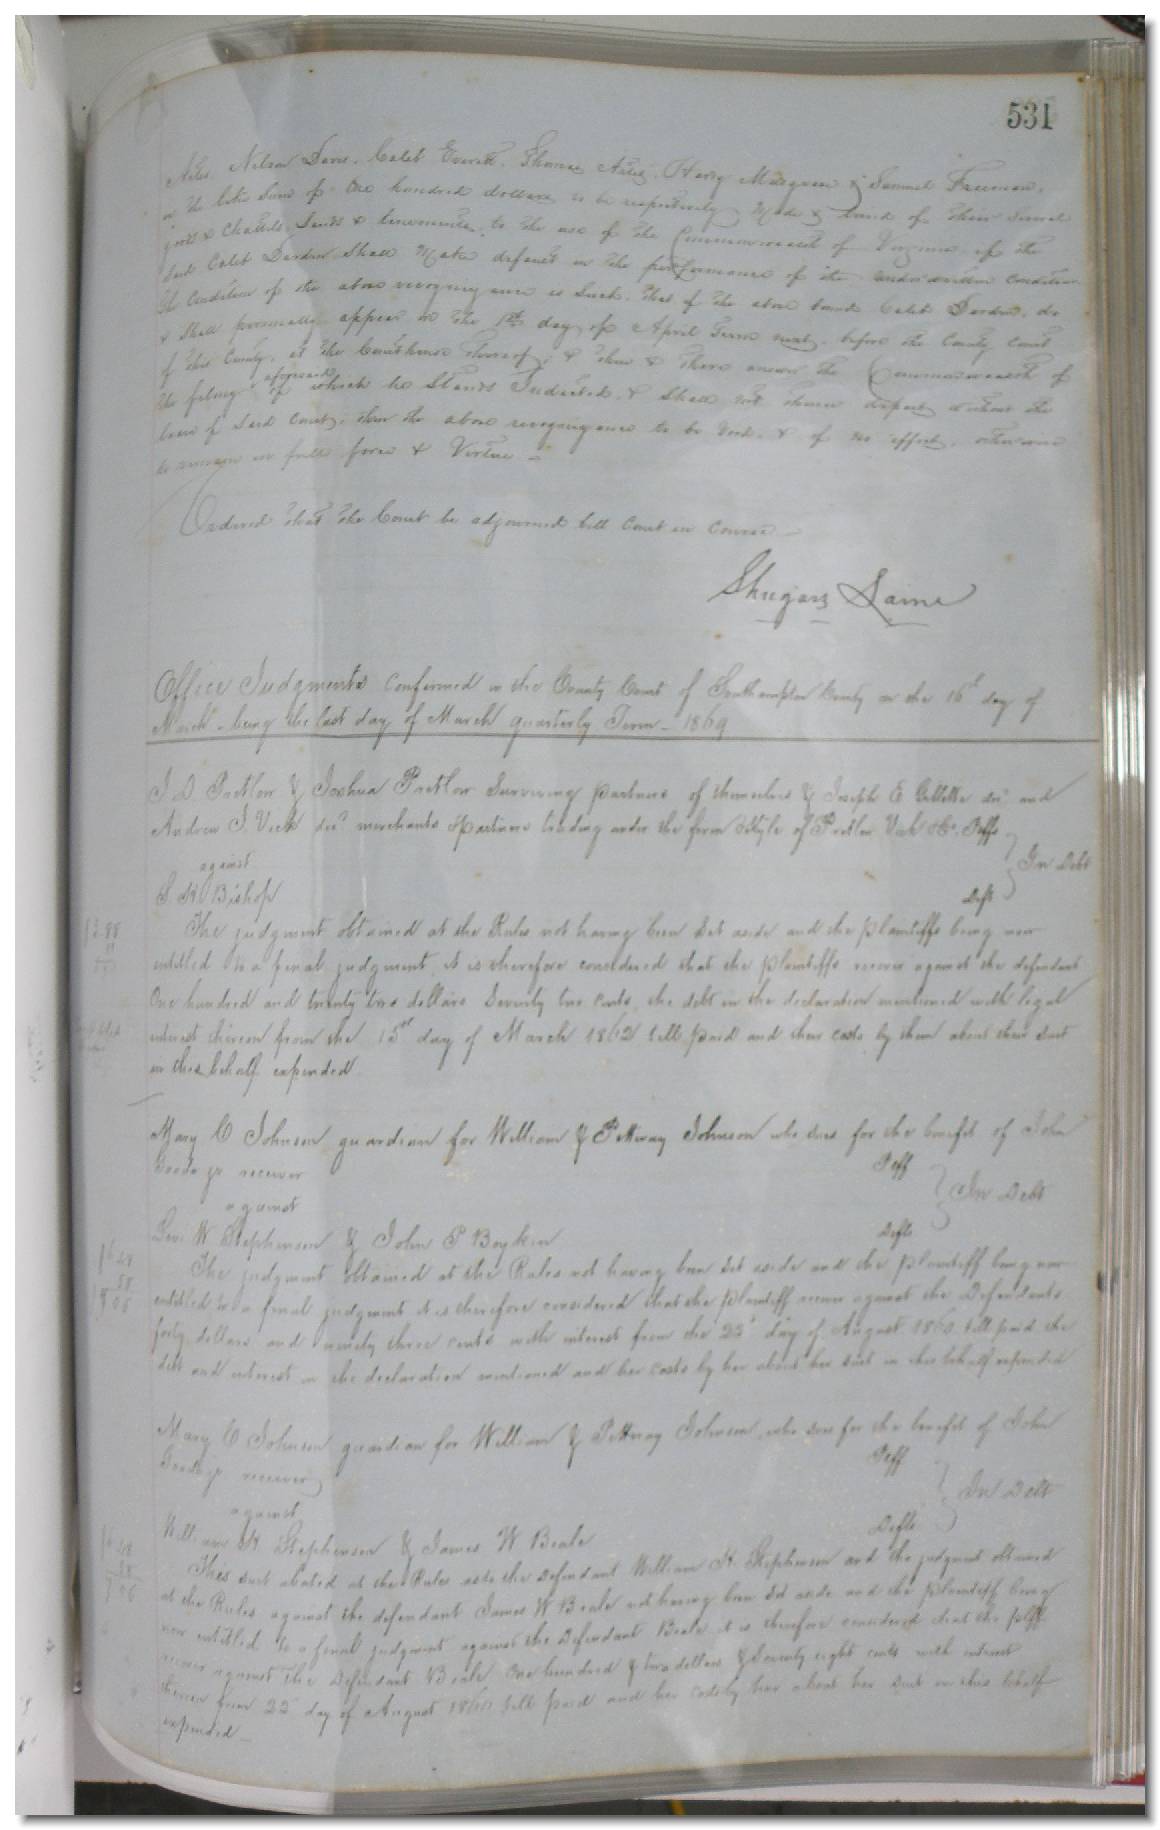 531
Nelson Davis, Caleb Everett, Thomas Artis, Henry Musgrave & Samuel Freeman,
in the like sum of One hundred dollars to be respectively made & levied of their several
goods & chattels, lands & tenements, to the use of the Commonwealth of Virginia, if the
said Caleb Darden shall make default in the performance of the underwritten condition
The Condition of the above recognizance is such, that if the above bound Caleb Darden, do
& shall personally appear on the 1st day of April Term next, before the County Court
of this County, at the Courthouse thereof, & then & there answer the Commonwealth of
the felony aforesaid of which he Stands Indicted, & shall not thence depart without the
leave of said Court, then the above recognizance to be void, & of no effect, otherwise
to remain in full force & Virtue
Ordered that the Court be adjourned till Court in Course
Shugars Laine
Office Judgments confirmed in the County Court of Southampton County on the 16th day of
March - being the last day of March quarterly Term - 1869
J D Pretlow & Joshua Pretlow Surviving partners of themselves & Joseph E Gillette decd and
Andrew J. Vick decd merchants & partners trading under the firm & style of Pretlow Vick & Co. Plffs
against
In Debt
S K Bishop Deft
The judgment obtained at the Rules not having been set aside and the plaintiffs being now
entitled to a final judgment, it is therefore considered that the plaintiffs recover against the defendant
One hundred and twenty two dollars Seventy two cents, the debt in the declaration mentioned with legal
interest thereon from the 15th day of March 1862 till paid and their costs by them about their suit
in this behalf expended
Mary C Johnson guardian for William & Pettway Johnson who sues for the benefit of John
Goode jr receiver Plff
against
In Debt
Levi W Stephenson & John P Boykin Defts
The judgment obtained at the Rules not having been set aside and the plaintiff being now
entitled to a final judgment it is therefore considered that the plaintiff recover against the Defendants
forty dollars and ninety three cents with interest from the 23d day of August 1860 till paid the
debt and interest in the declaration mentioned and her costs by her about her suit in this behalf expended
Mary C Johnson guardian for William & Pettway Johnson, who sues for the benefit of John
Goode jr receiver Plff
against
In Debt
William H. Stephenson & James W Beale Defts
This suit abated at the Rules as to the Defendant William H. Stephenson and the judgment obtained
at the Rules against the defendant James W Beale not having been set aside and the plaintiff being
now entitled to a final judgment against the Defendant Beale it is therefore considered that the plff
recover against the Defendant Beale One hundred & two dollars & Seventy eight cents with interest
thereon from 22d day of August 1860 till paid and her costs by her about her suit in this behalf
expended